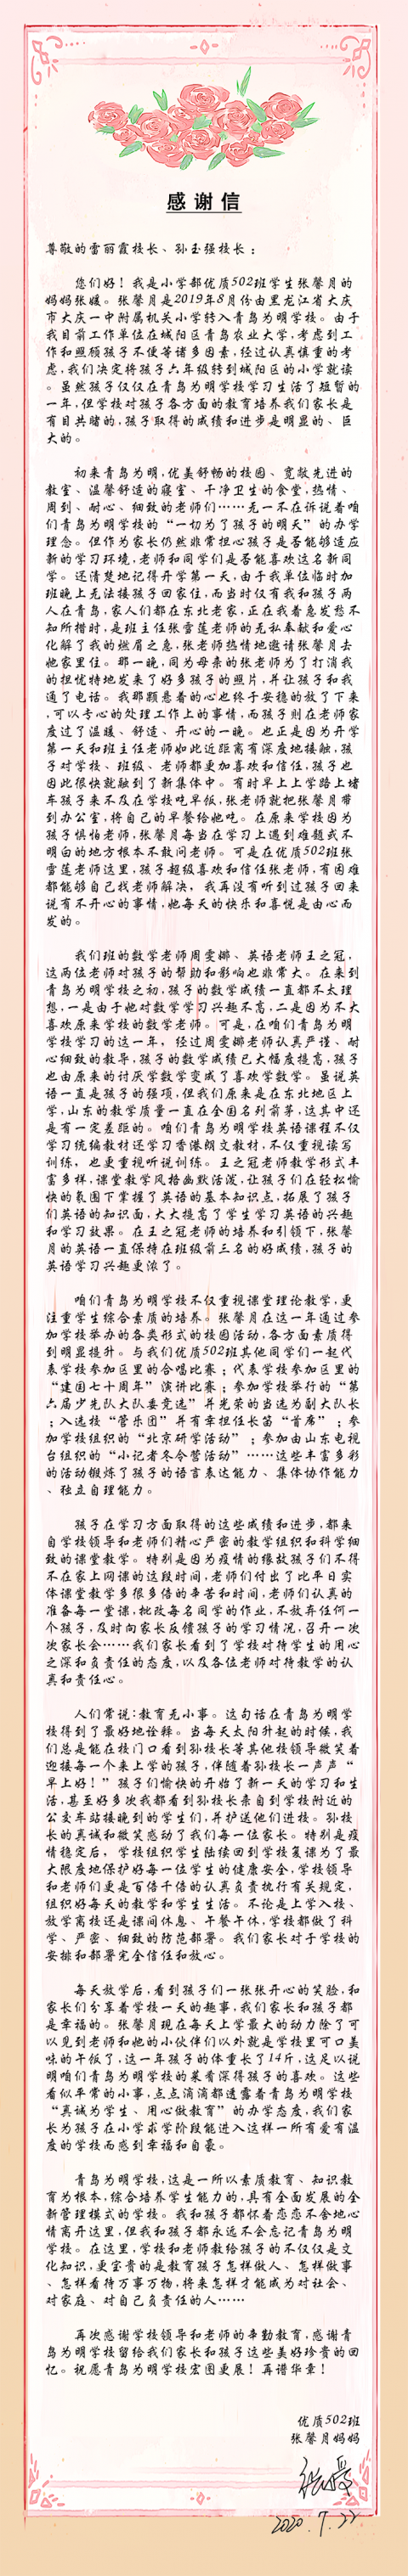 感谢信
尊敬的雷丽霞校长、孙玉强校长：
您们好！我是小学部优质502班学生张馨月的
妈妈张媛。张馨月是2019年8月份由黑龙江省大庆
市大庆一中附属机关小学转入青岛为明学校。由于
我目前工作单位在城阳区青岛农业大学，考虑到工
作和照顾孩子不便等诸多因素，经过认真慎重的考
虑，我们决定将孩子六年级转到城阳区的小学就读
。虽然孩子仅仅在青岛为明学校学习生活了短暂的
一年，但学校对孩子各方面的教育培养我们家长是
有目共睹的，孩子取得的成绩和进步是明显的、巨
大的。
初来青岛为明，优美舒畅的校园、宽敞先进的
教室、温馨舒适的寝室、干净卫生的食堂，热情、
周到、耐心、细致的老师们……无一不在诉说着咱
们青岛为明学校的“一切为了孩子的明天”的办学
理念。但作为家长仍然非常担心孩子是否能够适应
新的学习环境，老师和同学们是否能喜欢这名新同
学。还清楚地记得开学第一天，由于我单位临时加
班晚上无法接孩子回家住，而当时仅有我和孩子两
人在青岛，家人们都在东北老家，正在我着急发愁不
知所措时，是班主任张雪莲老师的无私奉献和爱心
化解了我的燃眉之急，张老师热情地邀请张馨月去
她家里住。那一晚，同为母亲的张老师为了打消我
的担忧特地发来了好多孩子的照片，并让孩子和我
通了电话。我那颗悬着的心也终于安稳的放了下来
，可以专心的处理工作上的事情，而孩子则在老师家
度过了温暖、舒适、开心的一晚。也正是因为开学
第一天和班主任老师如此近距离有深度地接触，孩
子对学校、班级、老师都更加喜欢和信任，孩子也
因此很快就融到了新集体中。有时早上上学路上堵
车孩子来不及在学校吃早饭，张老师就把张馨月带
到办公室，将自己的早餐给她吃。在原来学校因为
孩子惧怕老师，张馨月每当在学习上遇到难题或不
明白的地方根本不敢问老师。可是在优质502班张
雪莲老师这里，孩子超级喜欢和信任张老师，有困难
都能够自己找老师解决，我再没有听到过孩子回来
说有不开心的事情，她每天的快乐和喜悦是由心而
发的。
我们班的数学老师周雯娜、英语老师王之冠，
这两位老师对孩子的帮助和影响也非常大。在来到
青岛为明学校之初，孩子的数学成绩一直都不太理
想，一是由于她对数学学习兴趣不高，二是因为不大
喜欢原来学校的数学老师。可是，在咱们青岛为明
学校学习的这一年，经过周雯娜老师认真严谨、耐
心细致的教导，孩子的数学成绩已大幅度提高，孩子
也由原来的讨厌学数学变成了喜欢学数学。虽说英
语一直是孩子的强项，但我们原来是在东北地区上
学，山东的教学质量一直在全国名列前茅，这其中还
是有一定差距的。咱们青岛为明学校英语课程不仅
学习统编教材还学习香港朗文教材，不仅重视读写
训练，也更重视听说训练。王之冠老师教学形式丰
富多样，课堂教学风格幽默活泼，让孩子们在轻松愉
快的氛围下掌握了英语的基本知识点，拓展了孩子
们英语的知识面，大大提高了学生学习英语的兴趣
和学习效果。在王之冠老师的培养和引领下，张馨
月的英语一直保持在班级前三名的好成绩，孩子的
英语学习兴趣更浓了。
咱们青岛为明学校不仅重视课堂理论教学，更
注重学生综合素质的培养。张馨月在这一年通过参
加学校举办的各类形式的校园活动，各方面素质得
到明显提升。与我们优质502班其他同学们一起代
表学校参加区里的合唱比赛；代表学校参加区里的
“建国七十周年”演讲比赛；参加学校举行的“第
六届少先队大队委竞选”并光荣的当选为副大队长
；入选校“管乐团”并有幸担任长笛“首席”；参
加学校组织的“北京研学活动”；参加由山东电视
台组织的“小记者冬令营活动”……这些丰富多彩
的活动锻炼了孩子的语言表达能力、集体协作能力
、独立自理能力。
孩子在学习方面取得的这些成绩和进步，都来
自学校领导和老师们精心严密的教学组织和科学细
致的课堂教学。特别是因为疫情的缘故孩子们不得
不在家上网课的这段时间，老师们付出了比平日实
体课堂教学多很多倍的辛苦和时间，老师们认真的
准备每一堂课，批改每名同学的作业，不放弃任何一
个孩子，及时向家长反馈孩子的学习情况，召开一次
次家长会……我们家长看到了学校对待学生的用心
之深和负责任的态度，以及各位老师对待教学的认
真和责任心。
人们常说：教育无小事。这句话在青岛为明学
校得到了最好地诠释。当每天太阳升起的时候，我
们总是能在校门口看到孙校长等其他校领导微笑着
迎接每一个来上学的孩子，伴随着孙校长一声声“
早上好！”孩子们愉快的开始了新一天的学习和生
活，甚至好多次我都看到孙校长亲自到学校附近的
公交车站接晚到的学生们，并护送他们进校。孙校
长的真诚和微笑感动了我们每一位家长。特别是疫
情稳定后，学校组织学生陆续回到学校复课为了最
大限度地保护好每一位学生的健康安全，学校领导
和老师们更是百倍千倍的认真负责执行有关规定，
组织好每天的教学和学生生活。不论是上学入校、
放学离校还是课间休息、午餐午休，学校都做了科
学、严密、细致的防范部署。我们家长对于学校的
安排和部署完全信任和放心。
每天放学后，看到孩子们一张张开心的笑脸，和
家长们分享着学校一天的趣事，我们家长和孩子都
是幸福的。张馨月现在每天上学最大的动力除了可
以见到老师和她的小伙伴们以外就是学校里可口美
味的午饭了，这一年孩子的体重长了14斤，这足以说
明咱们青岛为明学校的菜肴深得孩子的喜欢。这些
看似平常的小事，点点滴滴都透露着青岛为明学校
“真诚为学生、用心做教育”的办学态度，我们家
长为孩子在小学求学阶段能进入这样一所有爱有温
度的学校而感到幸福和自豪。
青岛为明学校，这是一所以素质教育、知识教
育为根本，综合培养学生能力的，具有全面发展的全
新管理模式的学校。我和孩子都怀着恋恋不舍地心
情离开这里，但我和孩子都永远不会忘记青岛为明
学校。在这里，学校和老师教给孩子的不仅仅是文
化知识，更宝贵的是教育孩子怎样做人、怎样做事
、怎样看待万事万物，将来怎样才能成为对社会、
对家庭、对自己负责任的人……
再次感谢学校领导和老师的辛勤教育，感谢青
岛为明学校留给我们家长和孩子这些美好珍贵的回
忆。祝愿青岛为明学校宏图更展！再谱华章！
优质502班
张馨月妈妈
张媛
2020.7.22